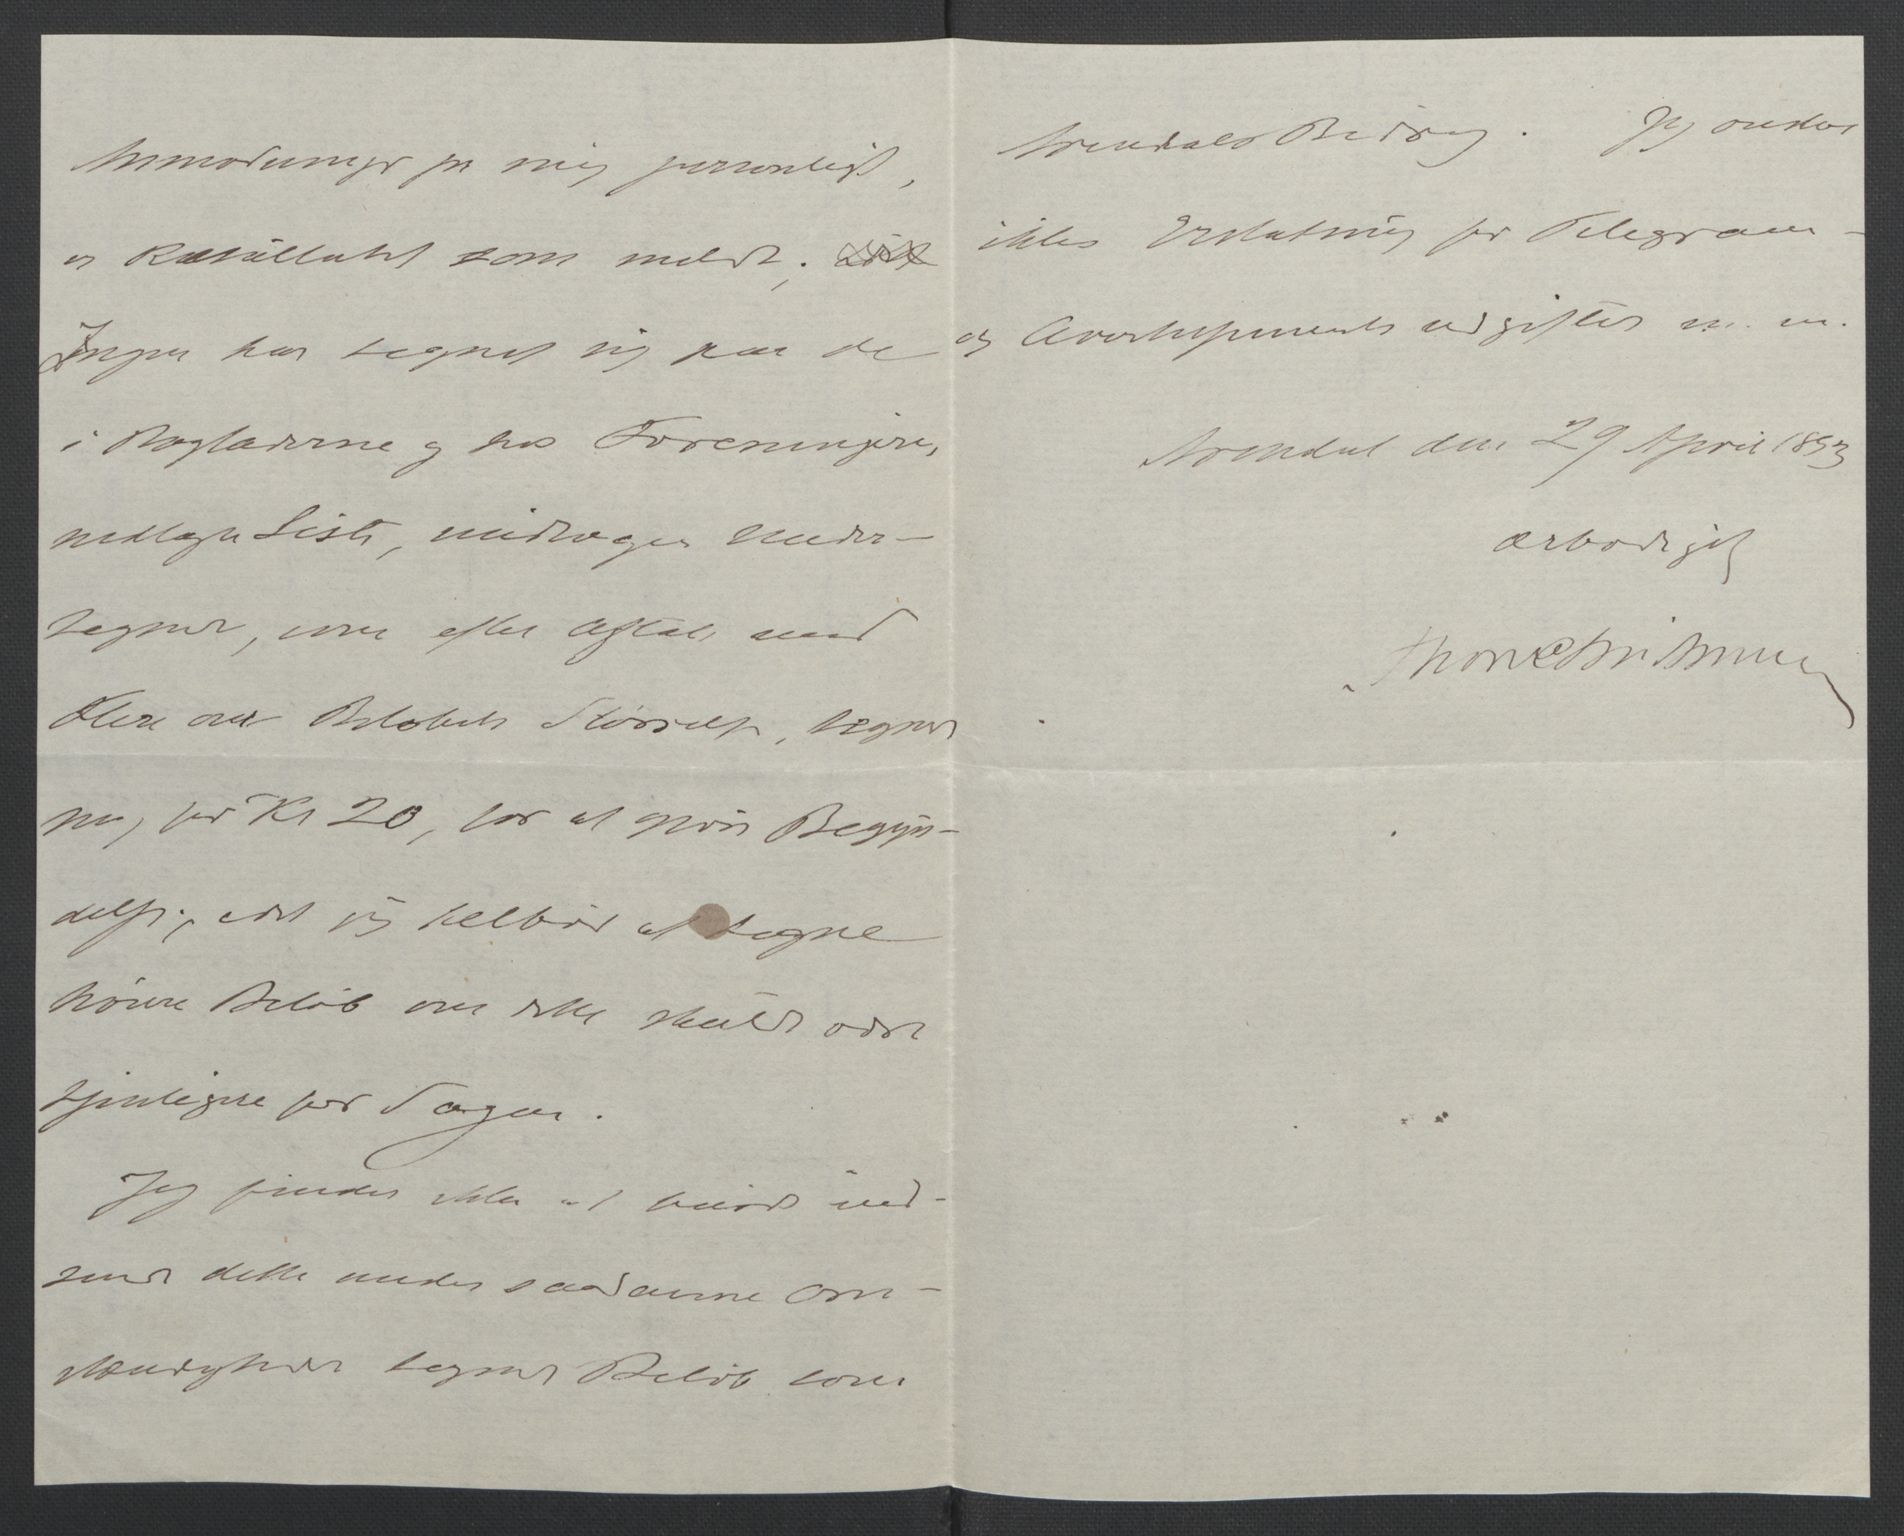 Anmodninger fra mig personligt,
er Resultatet som meldt;
Ingen har tegnet sig paa de
i Bogladerne og hos Foreningen
nedlagte Lister, undtagen Under-
tegnede, som efter Aftale med
Flere om Beløbets Størrelse, tegnede
mig for Kr 20, for at gjøre Begyn-
delse; idet jeg tilbød at tegne
høiere Beløb om dette skulde være
tjenligere for Sagen.
Jeg finder ikke at burde ind-
sende dette under saadanne Om-
stændigheder tegnede Beløb som
Arendals Bidrag. Jeg ønsker
ikke Erstatning for Telegram-
og Avertissements udgifter m. m.
Arendal den 29 April 1893
ærbødigst